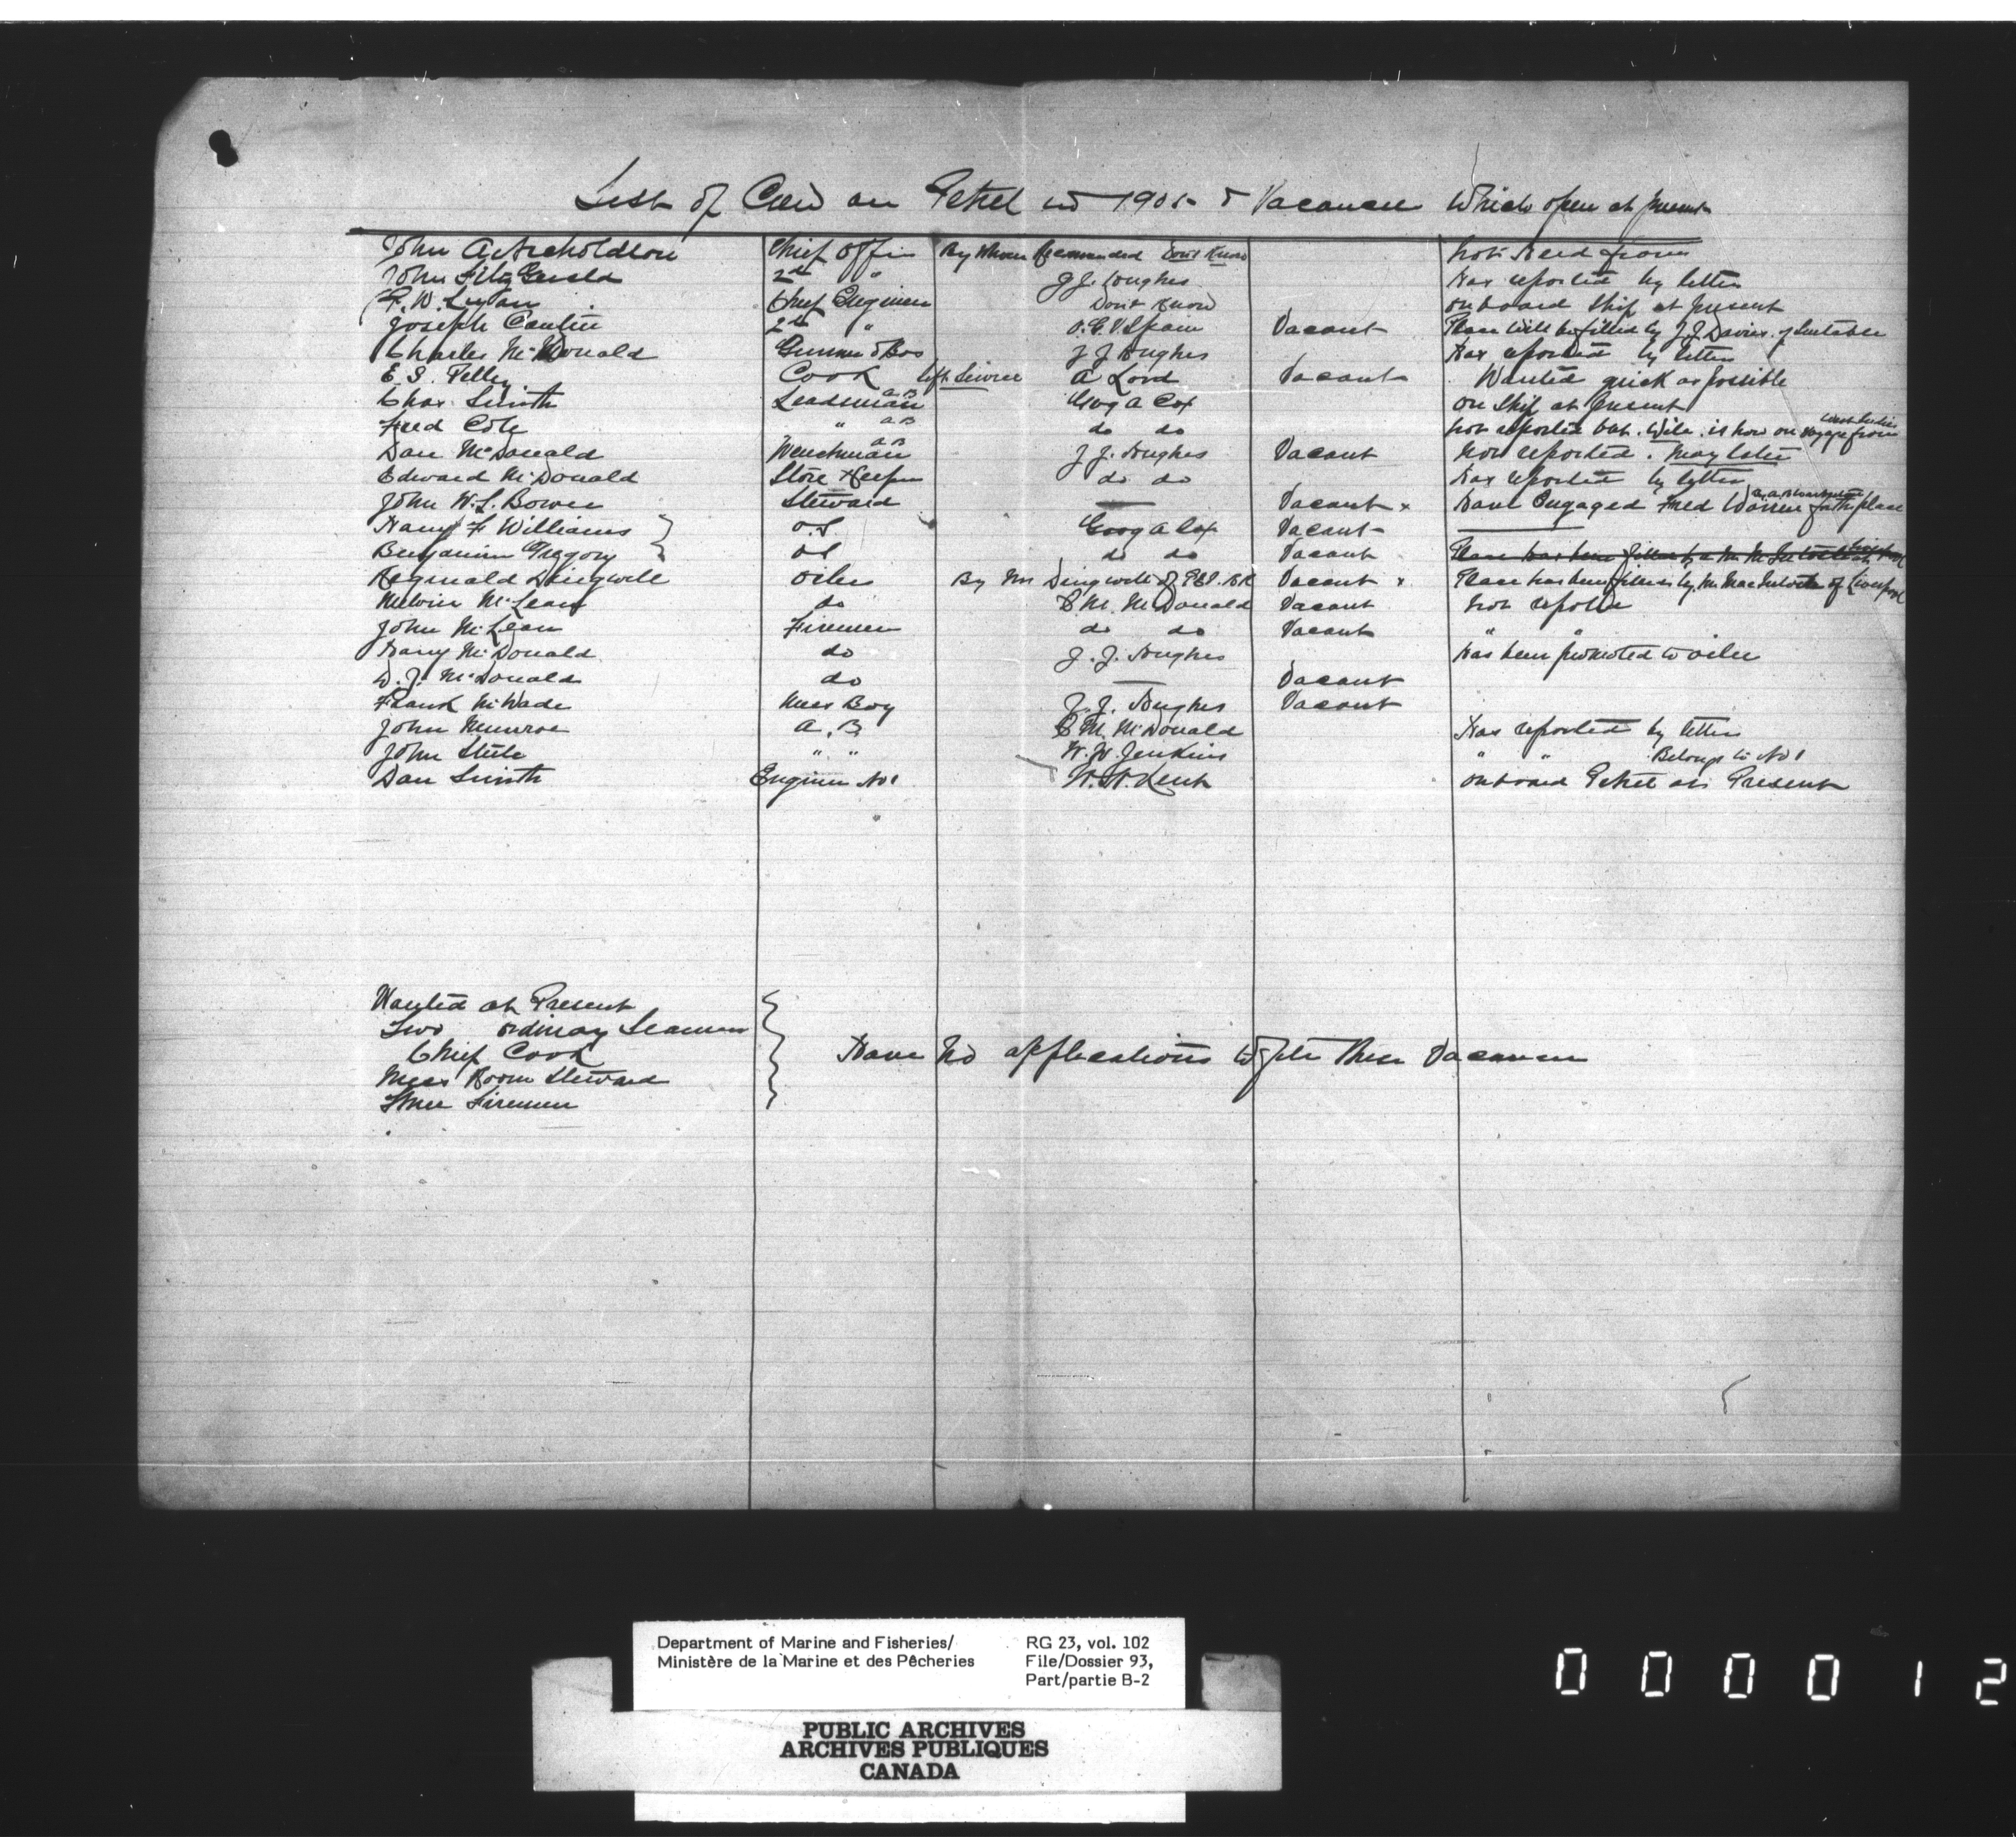 List of Crew on Petrel in 1905 & Vacancies Which open at present
John A. Archoldson Chief Officer By Whom Recommended Don't Know Not Heard from
John Fitz Gerald 2nd " J.J. Hughes Has reported by letter
Chief Engineer Don't Know on board Ship at present
Joseph Cantin 2nd " O.G.V. Spain Vacant Place will be filled by J.J. Davies if Suitable
Charles McDonald Gunner & Bos J.J. Hughes Has reported by letter
E.S. Pelley Cook left Service A Lord Vacant Wanted quick as possible
Chas. Smith Leadsman AB Geog A Cox on Ship at present
Fred Cole " AB do do Not reported but Wife is now on Voyage from West Indies
Dan McDonald Wenchman AB J.J. Hughes Vacant Not reported. May later
Edward McDonald Store Keeper do do Has reported by letter
John W.S. Bower Steward — Vacant x Have Engaged Fred Warren for the place
Harry F Williams O.S Geog A Cox Vacant
Benjamin Gregory OS do do Vacant
Reginald Dingwell Oiler By Mr Dingwell of P.E.I. RR Vacant x Place has been filled by Mr MacIntosh of Liverpool
Melvin McLean do C M. McDonald Vacant Not reported
John McLean Firemen do do Vacant " "
Harry McDonald do J.J. Hughes Has been promoted to oiler
D.J. McDonald do — Vacant
Frank McWade Mess Boy J.J. Hughes Vacant
John Munroe A.B C M. McDonald Has reported by letter
John Steele " " W.W. Jenkins " " Belongs to No 1
Dan Smith Engineer No 1 W.W. Kent on board Petrel at Present
Wanted at Present
Two ordinary Seamen
Chief Cook Have No applications to fill these Vacancies
Mess Room Steward
Three Firemen
Department of Marine and Fisheries/ RG 23, vol. 102
Ministère de la Marine et des Pêcheries File/Dossier 93,
Part/partie B-2
PUBLIC ARCHIVES
ARCHIVES PUBLIQUES
CANADA
000012